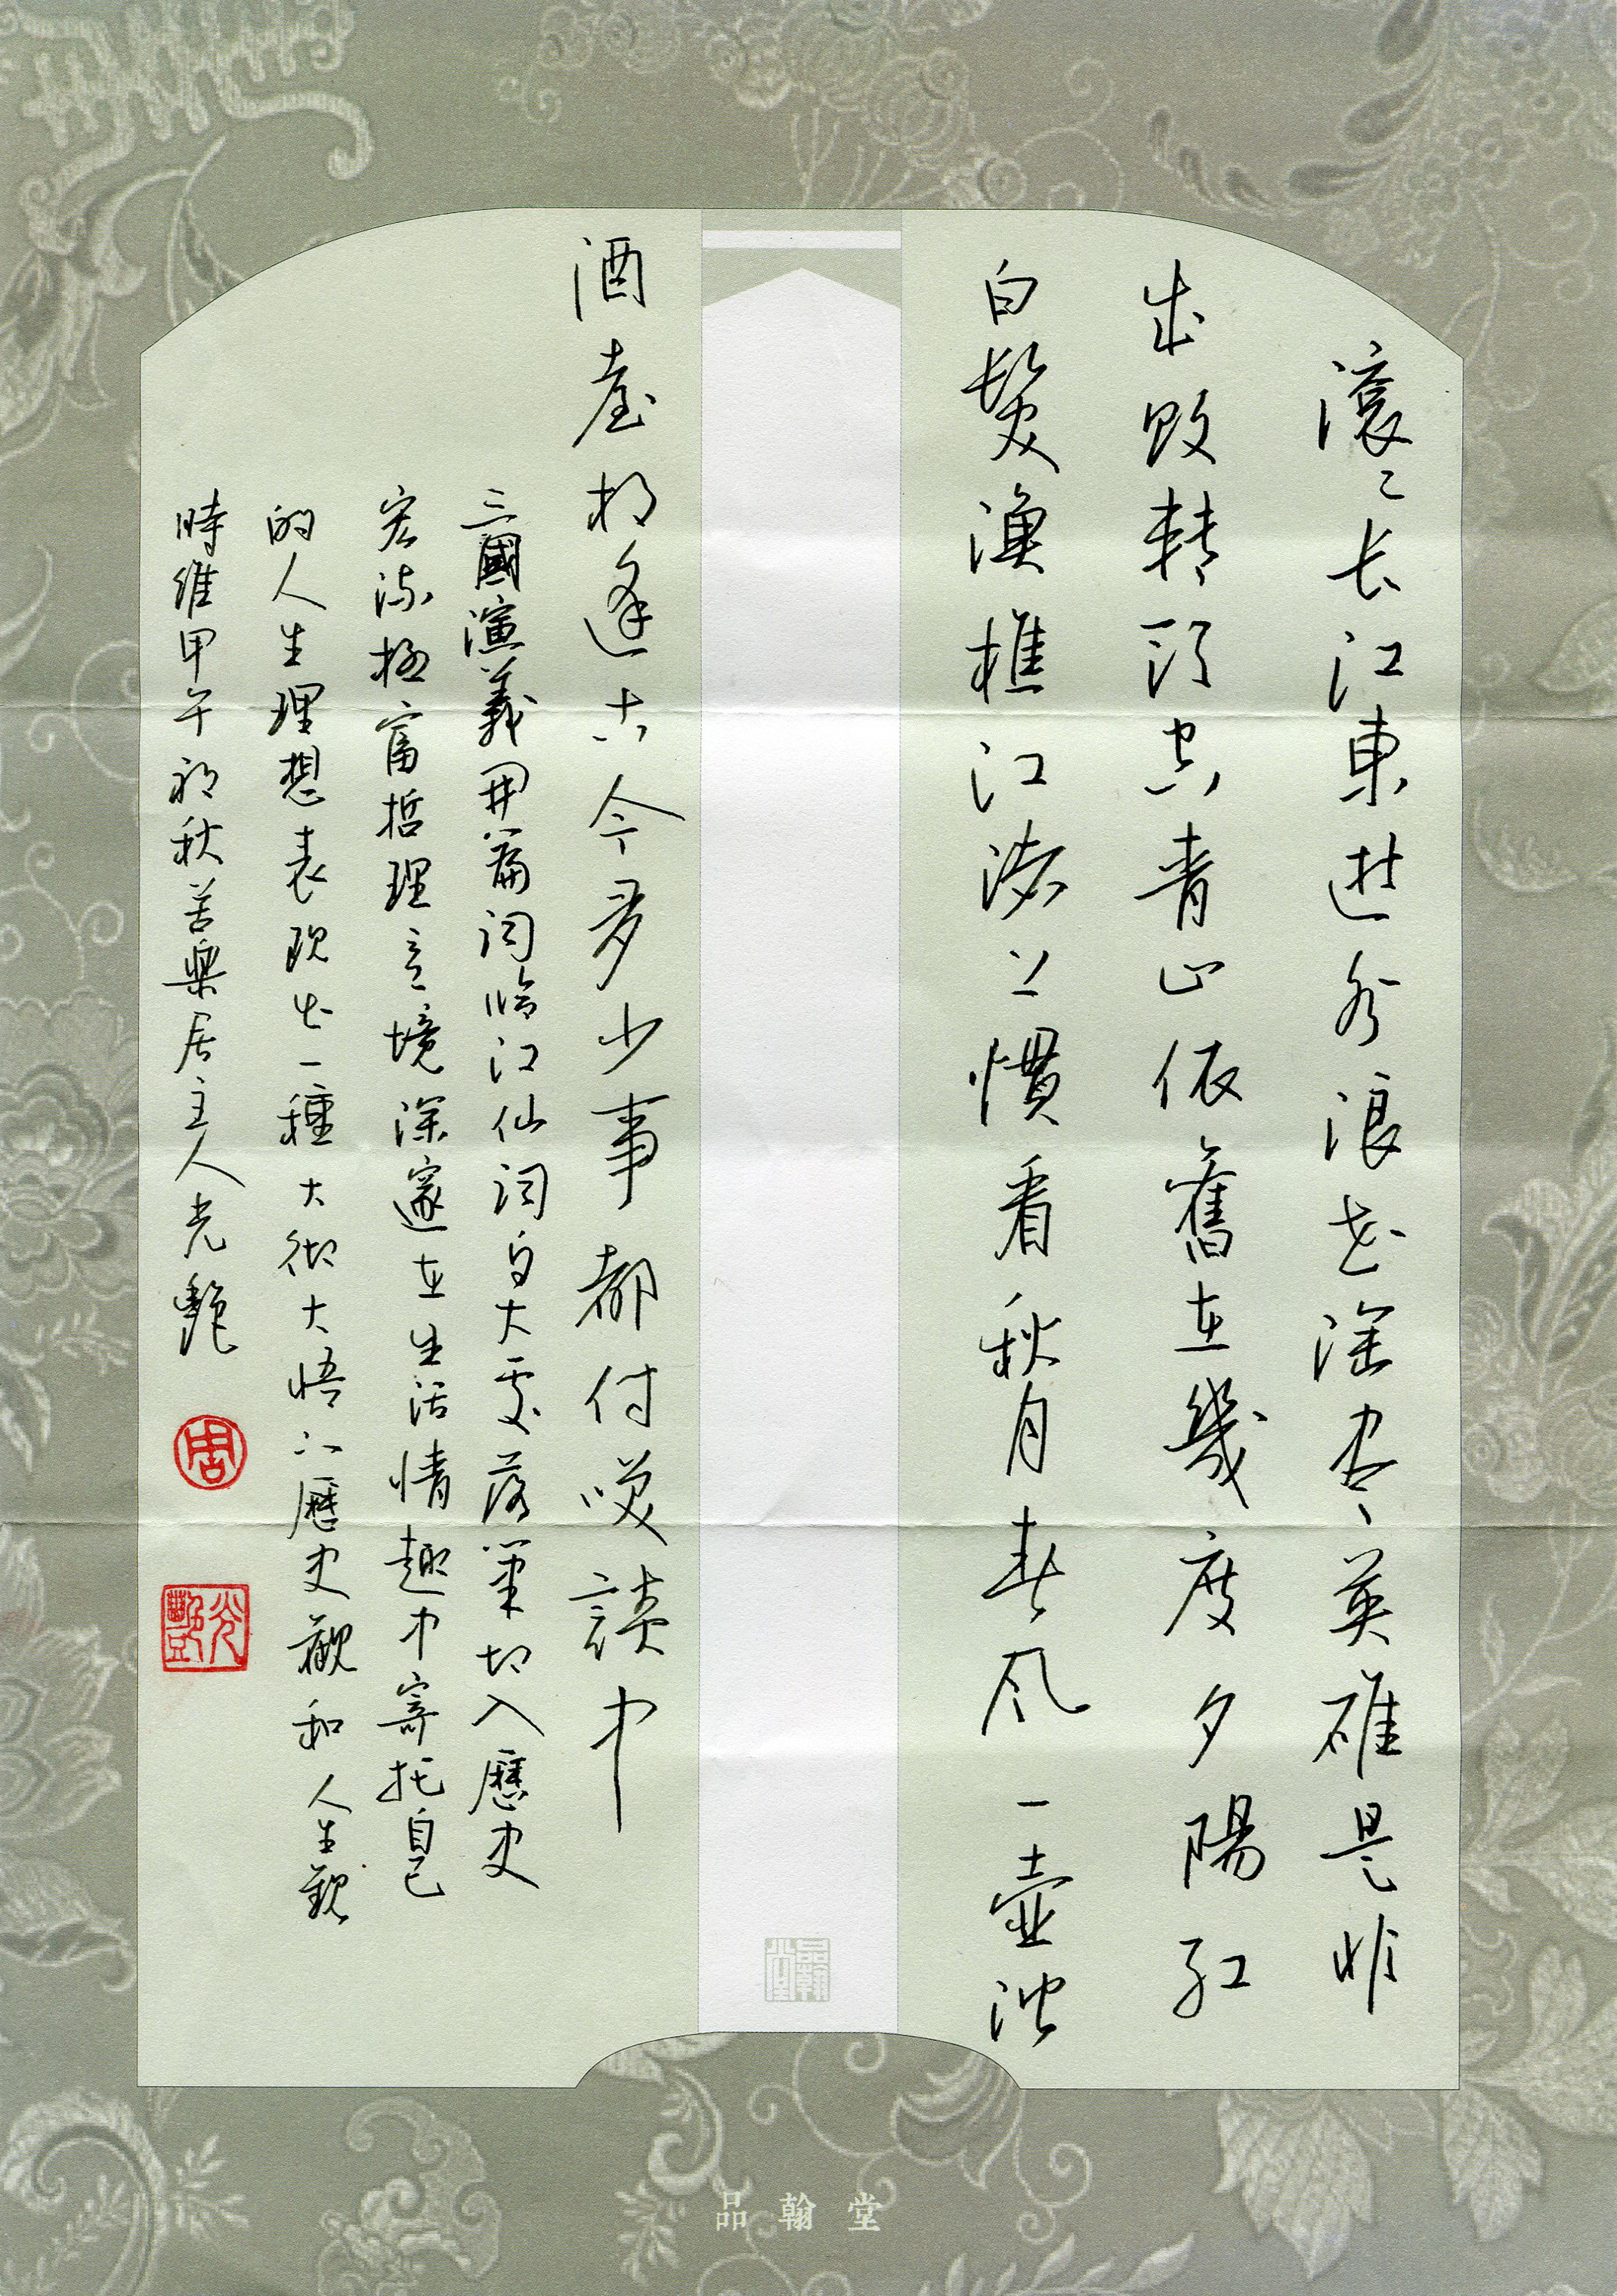 滾〻长江東逝水浪花淘尽英雄是非
成敗转頭空青山依舊在幾度夕陽红
白髮渔樵江渚上慣看秋月春风一壶浊
酒喜相逢古今多少事都付笑談中
三國演義開篇词临江仙词句大處落筆切入歷史
宏流極富哲理意境深邃在生活情趣中寄托自己
的人生理想表现出一種大彻大悟的歷史觀和人生觀
時維甲午初秋苦樂居主人光艷
周
光艷
品翰堂
品翰堂